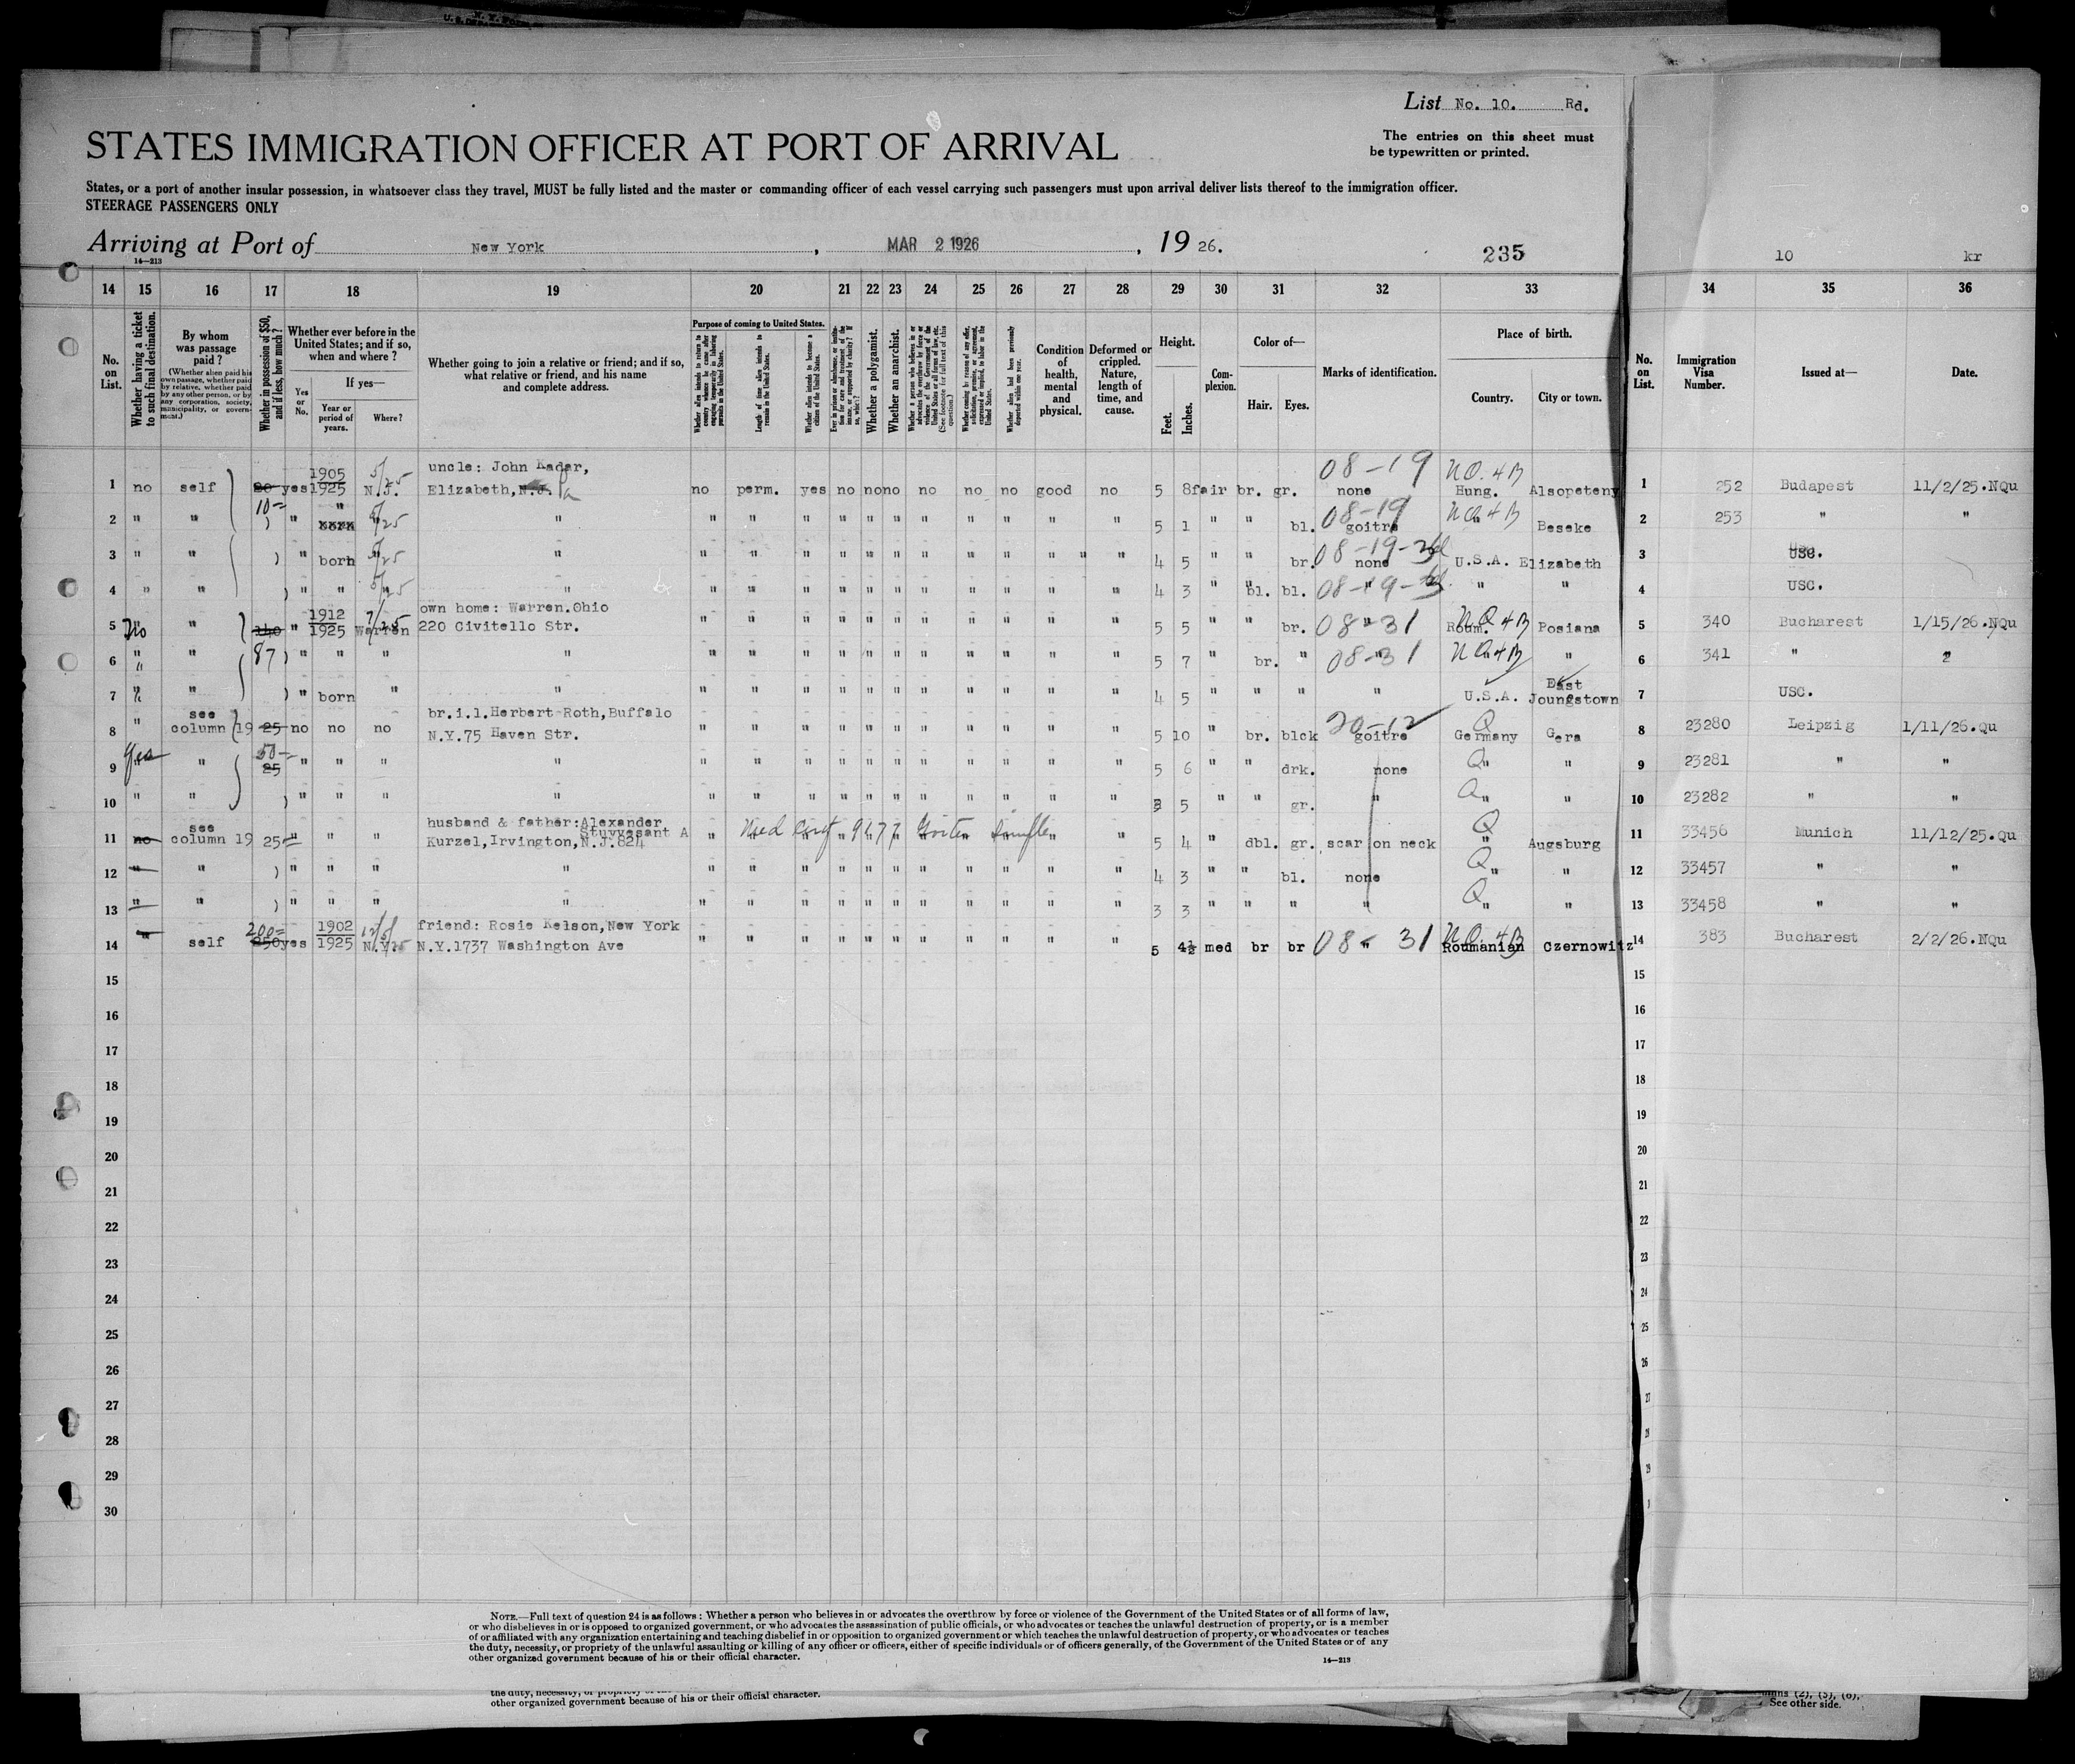 List No. 10. Rd.
STATES IMMIGRATION OFFICER AT PORT OF ARRIVAL
The entries on this sheet must
be typewritten or printed.
States, or a port of another insular possession, in whatsoever class they travel, MUST be fully listed and the master or commanding officer of each vessel carrying such passengers must upon arrival deliver lists thereof to the immigration officer.
STEERAGE PASSENGERS ONLY
Arriving at Port of New York, MAR 2 1926, 19 26.
14—213
235
10 kr
14 15 16 17 18 19 20 21 22 23 24 25 26 27 28 29 30 31 32 33 34 35 36
No. on List.
Whether having a ticket to such final destination.
By whom was passage paid?
(Whether alien paid his own passage, whether paid by relative, whether paid by any other person, or by any corporation, society, municipality, or government.)
Whether in possession of $50, and if less, how much?
Whether ever before in the United States; and if so, when and where?
Yes or No.
If yes—
Year or period of years.
Where?
Whether going to join a relative or friend; and if so, what relative or friend, and his name and complete address.
Purpose of coming to United States.
Whether alien intends to return to country whence he came after engaging temporarily in laboring pursuits in the United States.
Length of time alien intends to remain in the United States.
Whether alien intends to become a citizen of the United States.
Whether a polygamist.
Whether an anarchist.
Condition of health, mental and physical.
Deformed or crippled. Nature, length of time, and cause.
Height.
Feet.
Inches.
Complexion.
Color of—
Hair.
Eyes.
Marks of identification.
Place of birth.
Country.
City or town.
No. on List.
Immigration Visa Number.
Issued at—
Date.
1 no self 20 10 yes 1905 1925 5/25 N.J. uncle: John Kadar, Elizabeth, N.J. Pa no perm. yes no no no no no no good no 5 8 fair br. gr. 08-19 none NQ. 4B Hung. Alsopeteny 1 252 Budapest 11/2/25.NQu
2 " " ) " " 5/25 " " " " " " " " " " " " 5 1 " " bl. 08-19 goitre NQ 4B Beseke 2 253 " "
3 " " ) " born 5/25 " " " " " " " " " " " " 4 5 " " br. 08-19- none U.S.A. Elizabeth 3 USC.
4 " " ) " " 5/25 " " " " " " " " " " " " 4 3 " bl. bl. 08-19- " " " 4 USC.
5 no " 140 87 " 1912 1925 7/25 Warren own home: Warren.Ohio 220 Civitello Str. " " " " " " " " " " " 5 5 " br. 08-31 " NQ 4B Roum. Posiana 5 340 Bucharest 1/15/26.NQu
6 " " ) " " " " " " " " " " " " " " " 5 7 " br. " 08-31 " NQ 4B " 6 341 " 2
7 " " ) " born " " " " " " " " " " " " " 4 5 " " " " U.S.A. East Joungstown 7 USC.
8 " see column 19 25 no no no br.i.l.Herbert Roth,Buffalo N.Y.75 Haven Str. " " " " " " " " " " " 5 10 " br. blck 20-12 goitre Q Germany Gera 8 23280 Leipzig 1/11/26.Qu
9 yes " 50- 25 " " " " " " " " " " " " " " " 5 6 " " drk. none Q " " 9 23281 " "
10 " " ) " " " " " " " " " " " " " " " 3 5 " " gr. " Q " " 10 23282 " "
11 no see column 19 25 " " " husband & father:Alexander Kurzel,Irvington,N.J.824 Stuyvesant A " Med Cert 9477 Goiter Simple " " 5 4 " dbl. gr. scar on neck Q " Augsburg 11 33456 Munich 11/12/25.Qu
12 " " ) " " " " " " " " " " " " " " " 4 3 " " bl. none Q " " 12 33457 " "
13 " " ) " " " " " " " " " " " " " " " 3 3 " " " " Q " " 13 33458 " "
14 " self 200= 250 yes 1902 1925 N.Y. friend: Rosie Kelson,New York N.Y.1737 Washington Ave " " " " " " " " " " " 5 4½ med br br 08-31 " NQ. 4B Roumanian Czernowitz 14 383 Bucharest 2/2/26.NQu
15 15
16 16
17 17
18 18
19 19
20 20
21 21
22 22
23 23
24 24
25 25
26 26
27 27
28
29
30
NOTE.—Full text of question 24 is as follows: Whether a person who believes in or advocates the overthrow by force or violence of the Government of the United States or of all forms of law,
or who disbelieves in or is opposed to organized government, or who advocates the assassination of public officials, or who advocates or teaches the unlawful destruction of property, or is a member
of or affiliated with any organization entertaining and teaching disbelief in or opposition to organized government or which teaches the unlawful destruction of property, or who advocates or teaches
the duty, necessity, or propriety of the unlawful assaulting or killing of any officer or officers, either of specific individuals or of officers generally, of the Government of the United States or of any
other organized government because of his or their official character.
14—213
the duty, necessity, or propriety
other organized government because of his or their official character.
See other side.